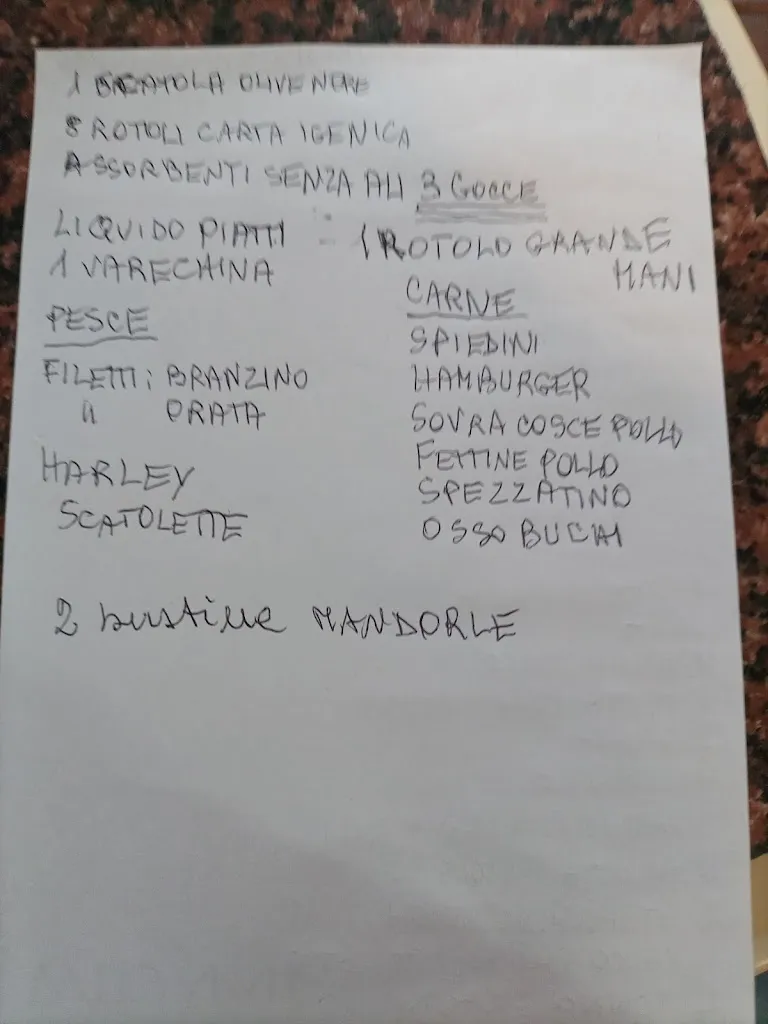 1 SCATOLA OLIVE NERE
8 ROTOLI CARTA IGENICA
ASSORBENTI SENZA ALI 3 GOCCE
LIQUIDO PIATTI = 1 ROTOLO GRANDE
MANI
1 VARECHINA
PESCE
FILETTI: BRANZINO
" ORATA
HARLEY
SCATOLETTE
CARNE
SPIEDINI
HAMBURGER
SOVRA COSCE POLLO
FETTINE POLLO
SPEZZATINO
OSSO BUCHI
2 bustine MANDORLE